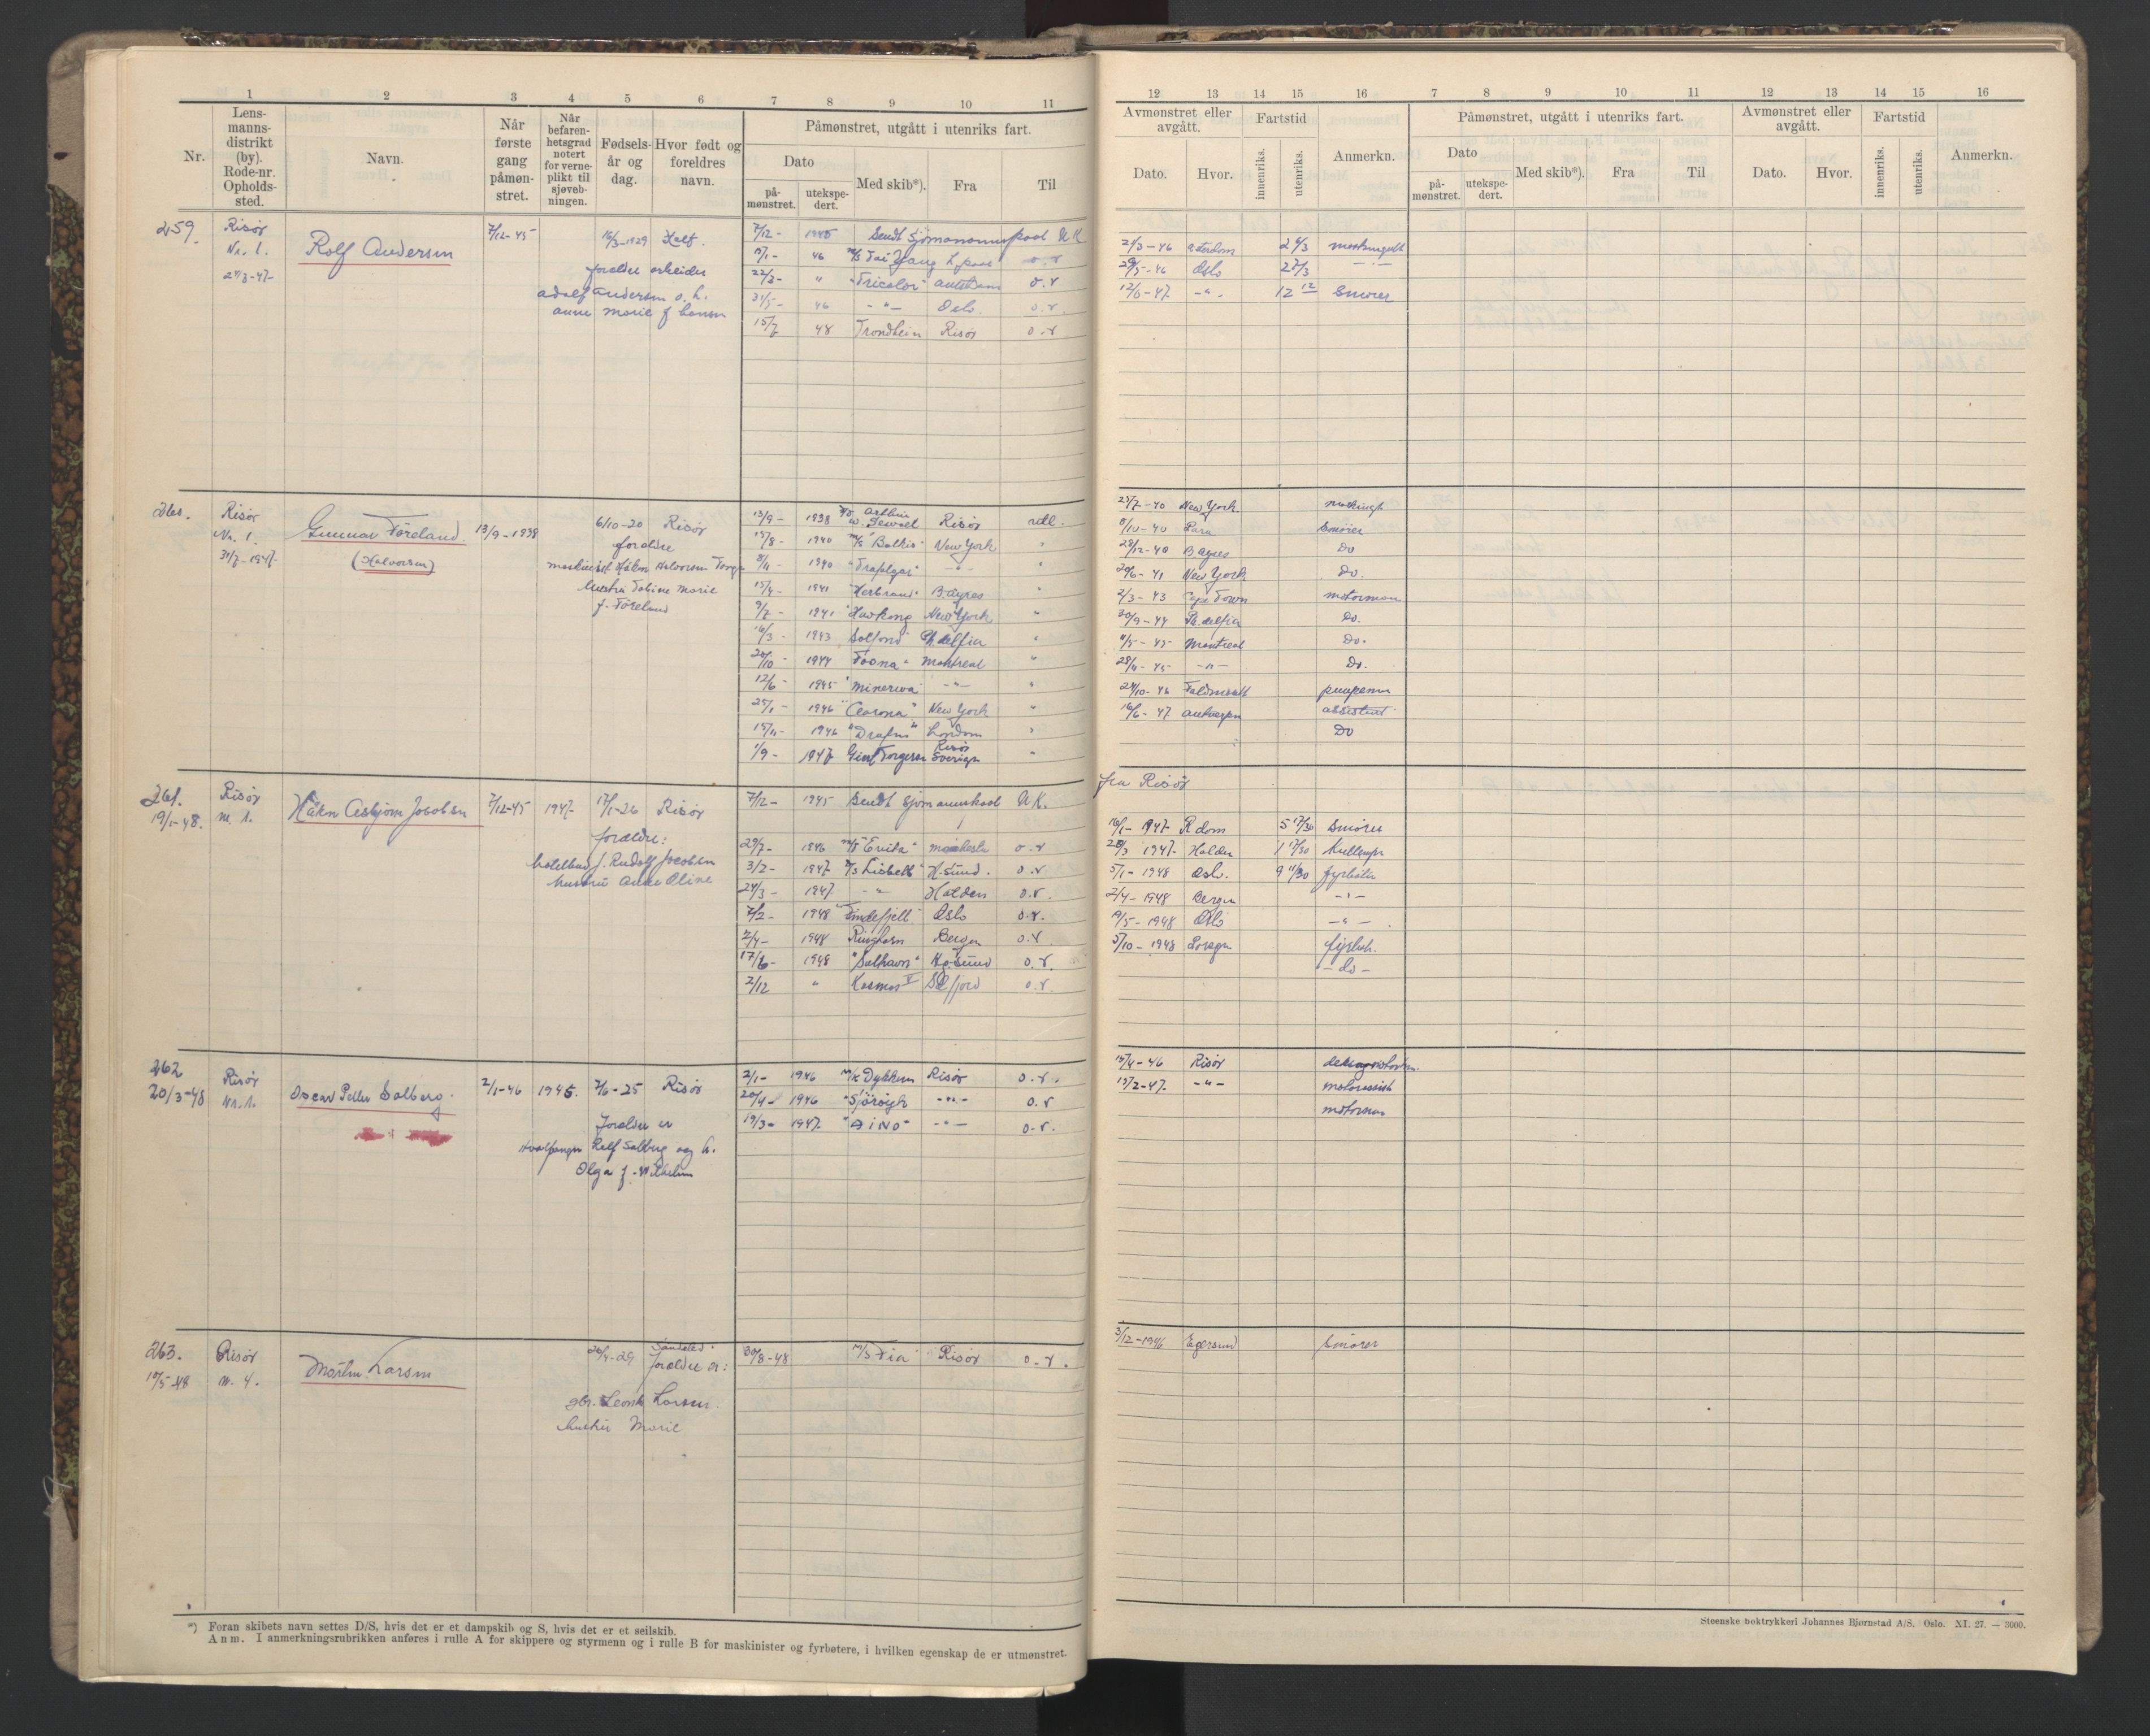 1 2 3 4 5 6 7 8 9 10 11
Nr.
Lens-
manns-
distrikt
(by).
Rode-nr.
Opholds-
sted.
Navn.
Når
første
gang
påmøn-
stret.
Når
befaren-
hetsgrad
notert
for verne-
plikt til
sjøveb-
ningen.
Fødsels-
år og
dag.
Hvor født og
foreldres
navn.
Påmønstret, utgått i utenriks fart.
Dato
på-
mønstret.
utekspe-
dert.
Med skib*).
Fra
Til
259.
Risør
Nr. 1.
24/3-47-
Rolf Andersen
7/12-45
16/3-1929
foreldre arbeider
Adolf Andersen o. h.
Anne Marie f
7/12- 1945 Sendt Sjømannspool U K
46 m/s Tai Yang L.pool o.r
22/3- " "Tricolor" o.r
31/5- 46 - " - Oslo. o.r.
15/7 48 Trondheim Risør o.r
260.
Risør
Nr. 1.
31/7-1947-
Gunnar Föreland.
(Halvorsen)
13/9-1938
6/10-20 Risør
foreldre
maskinist Håkon Halvorsen
hustru Tobine Marie
f. Föreland
13/9- 1938 Arthur W. Sewall Risør utl.
15/8- 1940 m/s "Balkis" New York "
8/11- 1940 "Trafalgar" - " - "
15/4- 1941 "Herbrand" B.ayres "
9/7- 1941 "Havkong New York "
16/3- 1943 Solfonn Ph.delfia "
20/10- 1944 "Foona" Montreal "
12/6- 1945 "Minerva" - " - "
25/1- 1946 "Corona" New York "
15/11- 1946 "Drafn" London "
1/9- 1947 Gint Torgersen Risør Sverige "
261.
19/1-48.
Risør
nr. 1.
Håkon Asbjørn Jacobsen
7/12-45
1947-
17/1-26 Risør
foreldre:
Rudolf Jacobsen
hustru Anna Oline
7/12- 1945 Sendt Sjømannspool U K.
29/7- 1946 m/s "Evita" o.r
3/2- 1947 D/S Lisbeth H.sund. o.r
24/3- 1947 - " Halden o.r.
7/2- 1948 "Tindefjell" Oslo o.r.
2/4- 1948 Ringhorn Bergen o.r.
17/6- 1948 "Solhavn" Hg.sund o.r.
2/12 " Kosmos V S.fjord o.r.
262
20/3-48
Risør
Nr. 1.
Oscar Petter Solberg.
2/1-46
1945.
7/6-25 Risør
Foreldre er
Hvalfanger Rolf Solberg og h.
Olga f.
2/1- 1946 m/k Dykkeren Risør o.r.
20/4- 1946 - " - o.r
19/3- 1947 "AINO" - " - o.r.
263.
10/5-48
Risør
nr. 4.
Martin Larsen
26/4-29
Søndeled.
foreldre er:
Larsen.
hustru Marie
30/8-48 m/s "Fia" Risør o.r.
*) Foran skibets navn settes D/S, hvis det er et dampskib og S, hvis det er et seilskib.
Anm. I anmerkningsrubrikken anføres i rulle A for skippere og styrmenn og i rulle B for maskinister og fyrbøtere, i hvilken egenskap de er utmønstret.
12 13 14 15 16 7 8 9 10 11 12 13 14 15 16
Avmønstret eller
avgått.
Dato.
Hvor.
Fartstid
innenriks.
utenriks.
Anmerkn.
Påmønstret, utgått i utenriks fart.
Dato
på-
mønstret.
utekspe-
dert.
Med skib*).
Fra
Til
Avmønstret eller
avgått.
Dato.
Hvor.
Fartstid
innenriks.
utenriks.
Anmerkn.
2/3-46
29/5-46 Oslo
12/6-47- - " - 12 12 Smører
25/7-40 New York
8/10-40 Para Smører
28/12-40 B.ayres Do
20/6-41 New York Do.
2/3-43 Cape Town motorman
30/9-44 Ph.delfia Do.
11/5-45- Montreal Do.
28/11-45- - " - Do.
24/10-46
16/6-47 Antwerpen assistent
Do
fra Risør
16/1-1947- R.dam 5 17/30 Smører
20/3 1947- Halden 1 17/30
5/1-1948 Oslo. 9 11/30 fyrbøter
2/4-1948 Bergen - " -
19/5-1948 Oslo - " -
5/10-1948 fyrbøt.
- do -
15/4-46 Risør
13/2-47- - " - motorassist
motorman
3/12-1946 Egersund Smører
Steenske boktrykkeri Johannes Bjørnstad A/S. Oslo. XI. 27. — 3000.